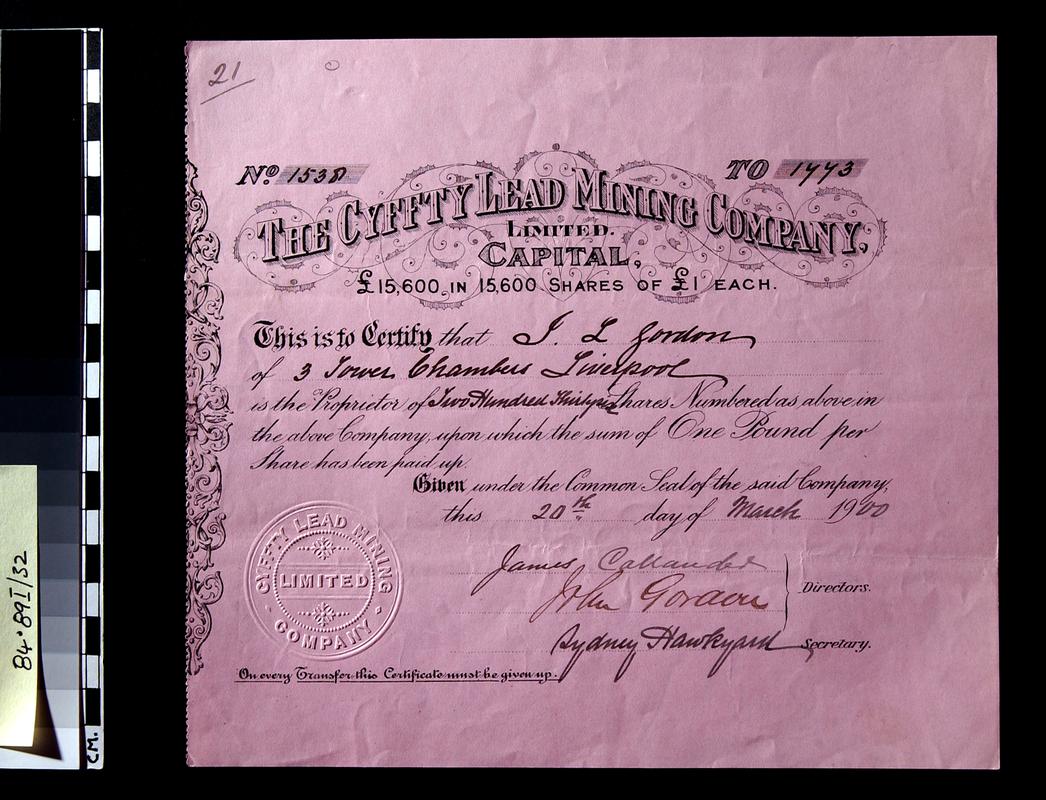 21
Nº 1538 TO 1773
THE CYFFTY LEAD MINING COMPANY,
LIMITED.
CAPITAL,
£15,600, IN 15,600 SHARES OF £1 EACH.
This is to Certify that J. L Gordon
of 3 Tower Chambers Liverpool
is the Proprietor of Two Hundred Thirty six Shares Numbered as above in
the above Company, upon which the sum of One Pound per
Share has been paid up.
Given under the Common Seal of the said Company,
this 20th day of March 1900
CYFFTY LEAD MINING
LIMITED
COMPANY
James Callander
John Gordon
Directors.
Sydney Hawkyard Secretary.
On every Transfer this Certificate must be given up.
84.89I/32
CM.